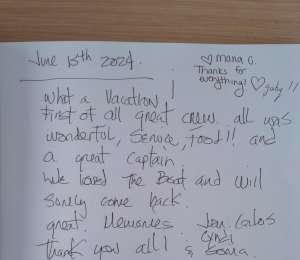 June 15th 2024.
♡ maria C.
Thanks for
everything!
♡ gaby !!
What a Vacation!
first of all great crew. all was
wonderful, Service, food!! and
a great Captain.
We loved the Boat and will
surely come back.
great. Memories.
thank you all!